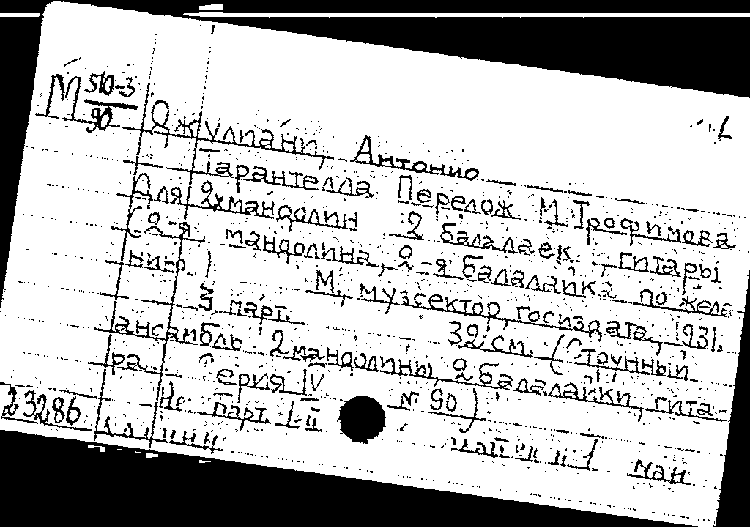 М 510-3
90
Джулиани, Антонио
Тарантелла Перелож. М. Трофимова
Для 2х мандолин 2 балалаек, гитары
(2-я мандолина, 2-я балалайка по жела-
нию)
М, музсектор госиздата, 1931.
3 парт. 32 см. (Струнный
ансамбль 2 мандолины, 2 балалайки, гита-
ра. Серия IV № 90)
23286 Не парт I-II
1 ман